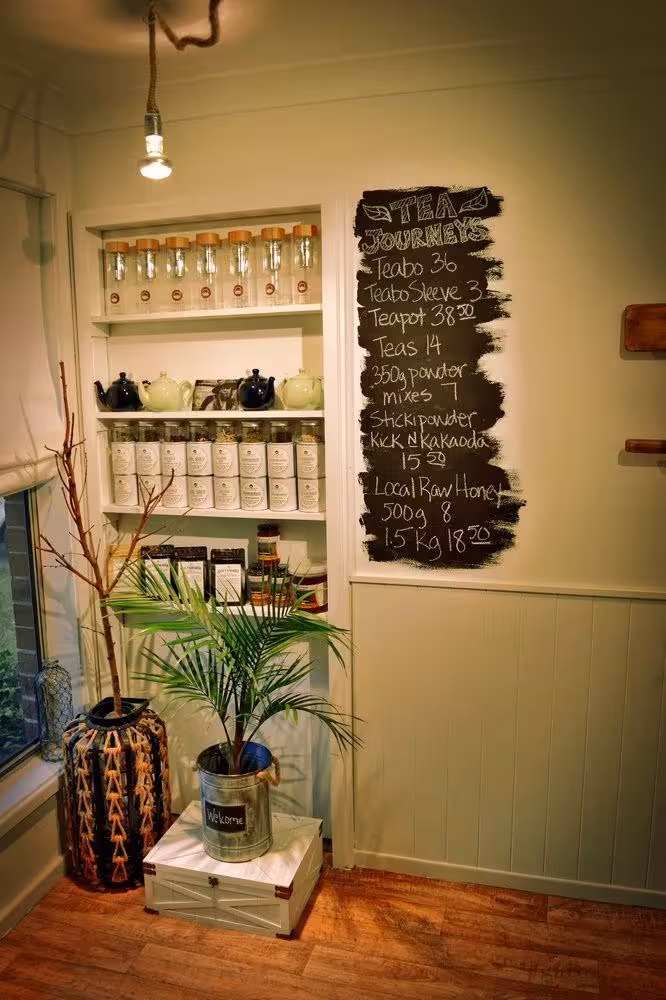 TEA
JOURNEYS
Teabo 36
Teabo Sleeve 3
Teapot 38 50
Teas 14
350g powder
mixes 7
Stickipowder
Kick N Kakaoda
15 50
Local Raw Honey
500g 8
1.5 Kg 18 50
Welcome